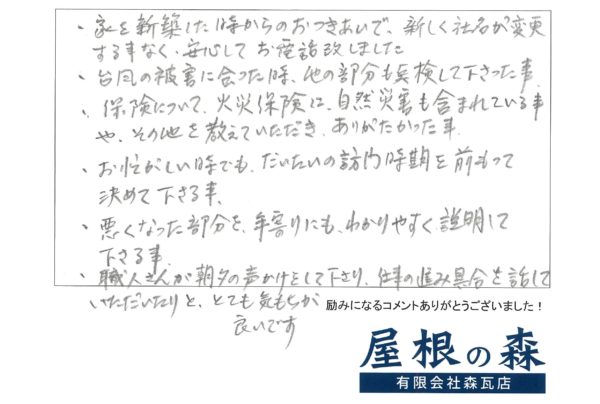 ・家を新築した時からのおつきあいで、新しく社名が変更
する事なく、安心してお電話致しました
・台風の被害に会った時、他の部分も点検して下さった事。
・保険について、火災保険に、自然災害も含まれている事
や、その他を教えていただき、ありがたかった事。
・お忙がしい時でも、だいたいの訪問時期を前もって
決めて下さる事。
・悪くなった部分を、年寄りにも、わかりやすく説明して
下さる事。
・職人さんが朝夕の声かけをして下さり、仕事の進み具合を話して
いただいたりと、とても気もちが
良いです
励みになるコメントありがとうございました！
屋根の森
有限会社森瓦店